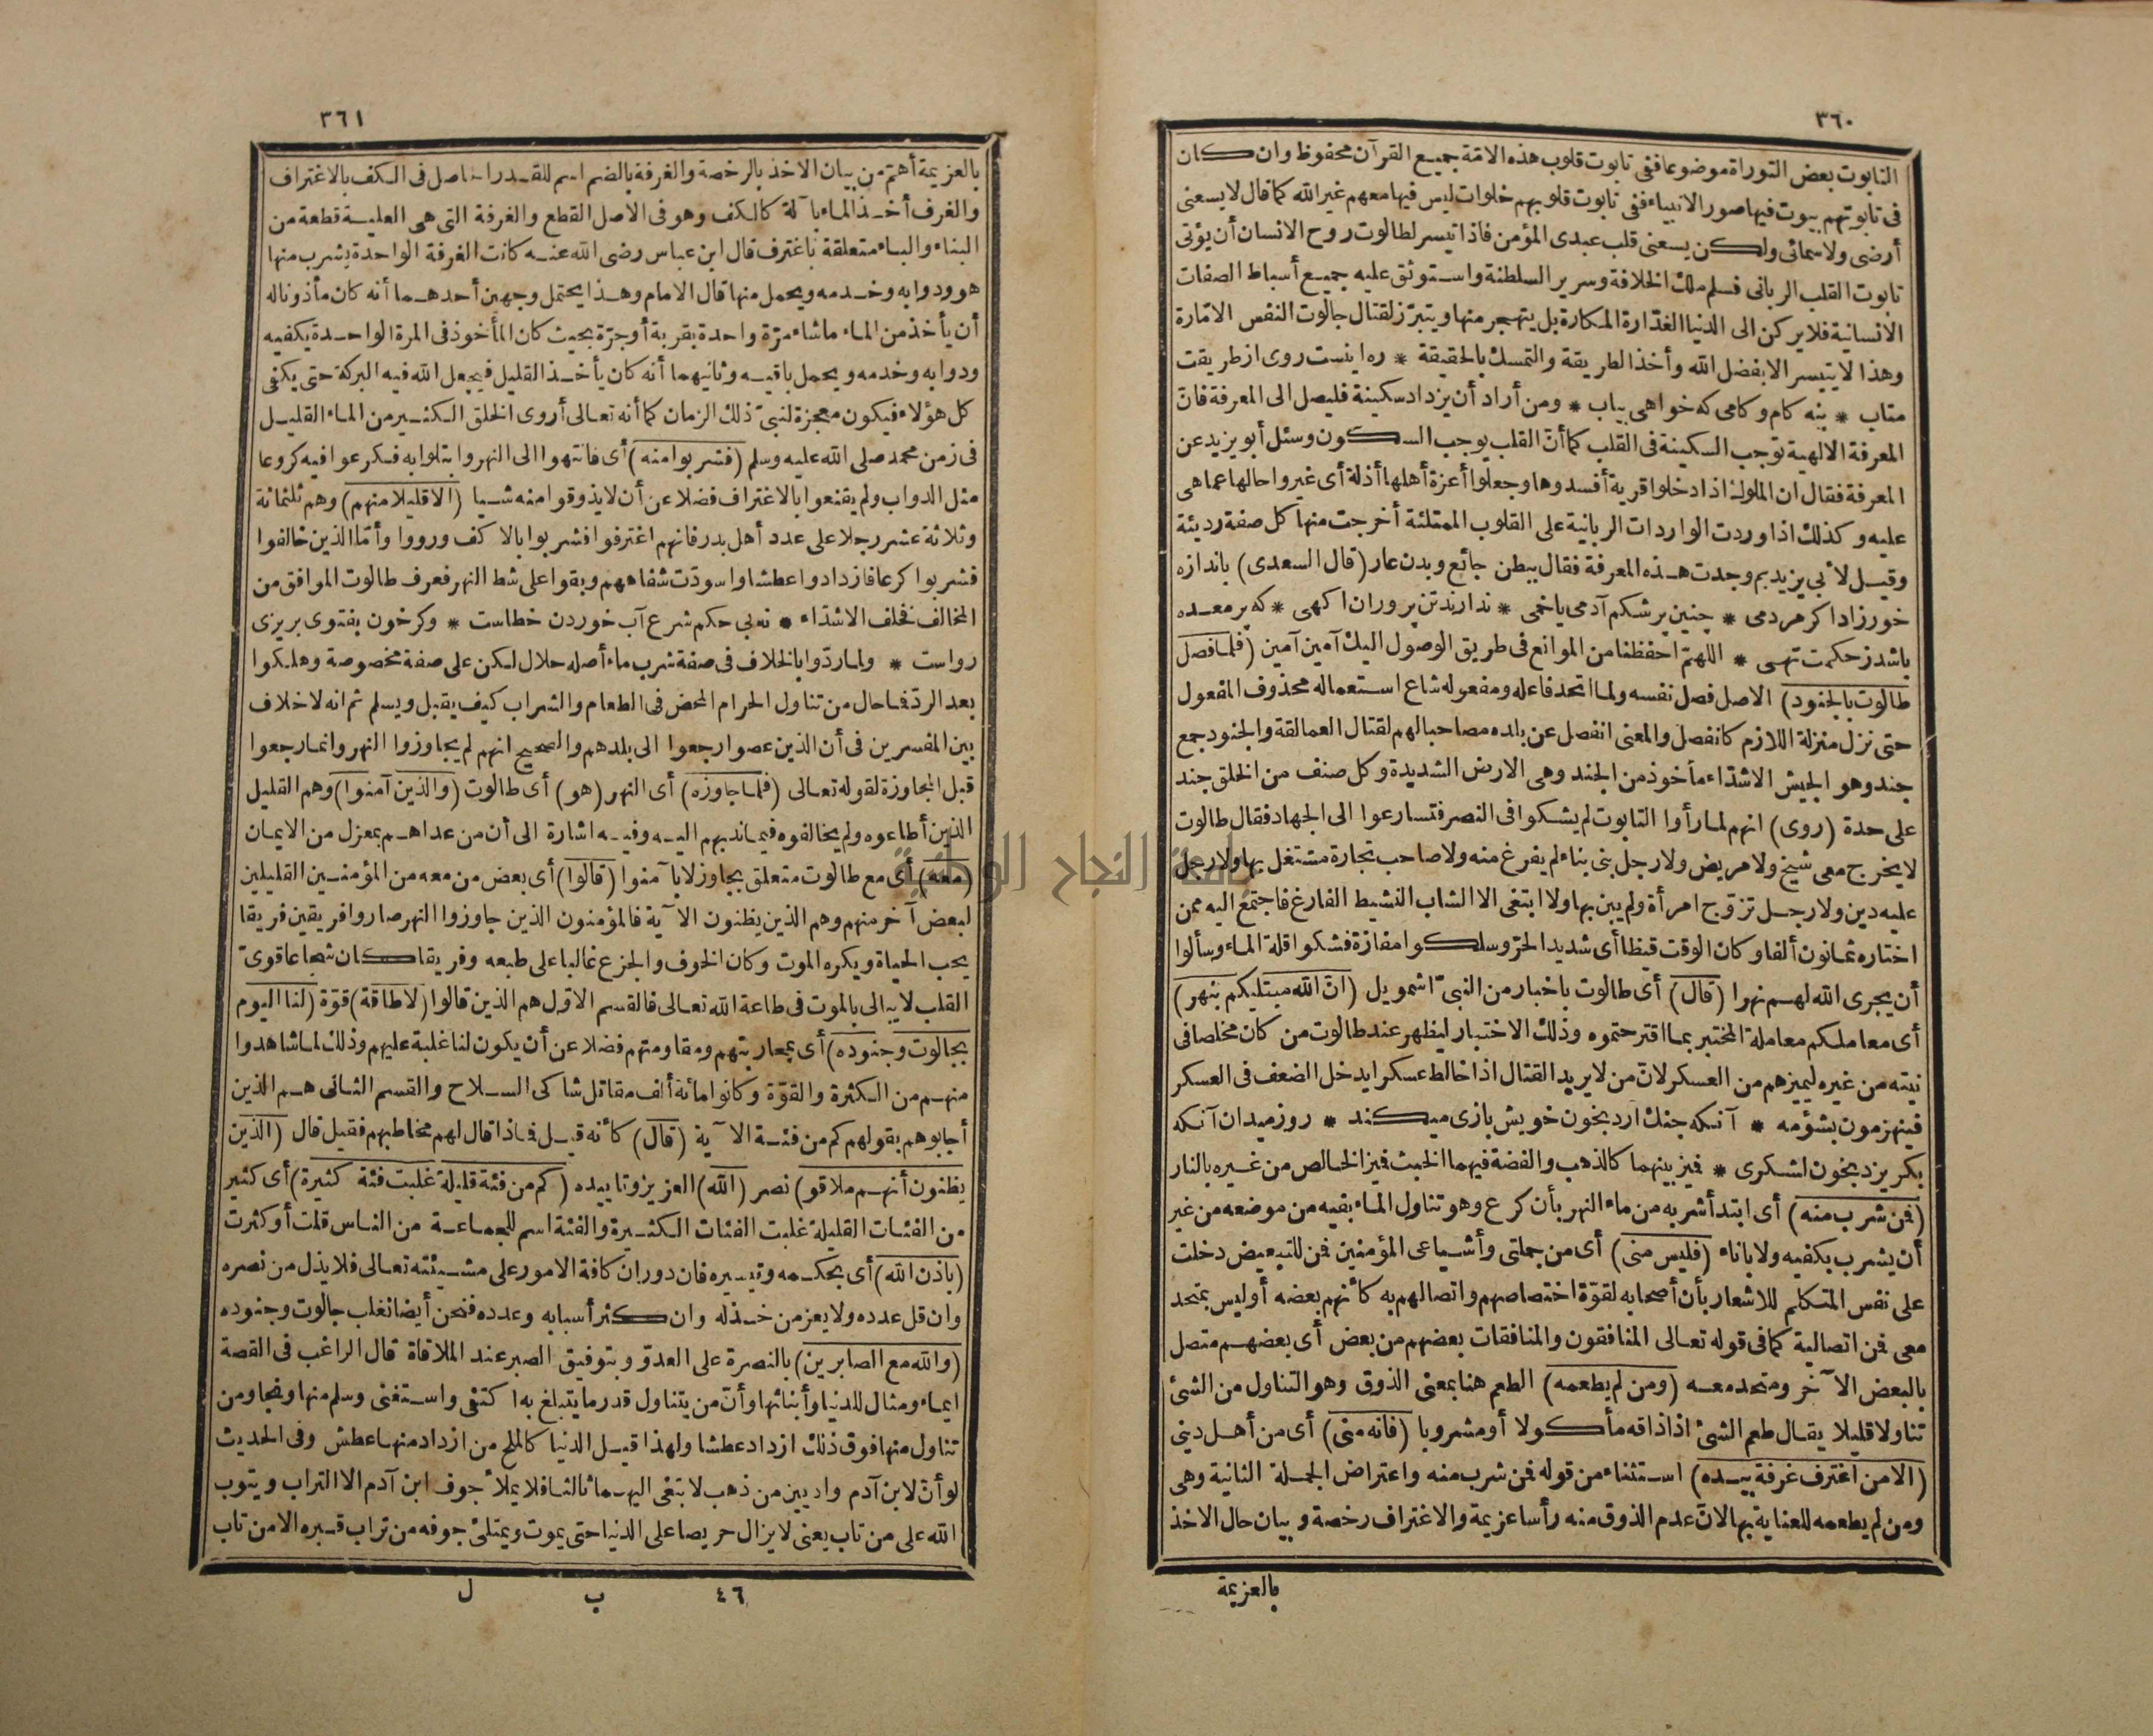 ٣٦٠
التابوت بعض التوراة موضوعا ففى تابوت قلوب هذه الامّة جميع القرآن محفوظ وان كان
فى تابوتهم بيوت فيها صور الانبياء ففى تابوت قلوبهم خلوات ليس فيها معهم غير الله كما قال لا يسعنى
أرضى ولا سمائى ولكن يسعنى قلب عبدى المؤمن فاذا تيسر لطالوت روح الانسان أن يؤتى
تابوت القلب الربانى فسلم ملك الخلافة وسرير السلطنة واستوثق عليه جميع أسباط الصفات
الانسانية فلا يركن الى الدنيا الغدّارة المكارة بل يتهجر منها ويتبرّز لقتال جالوت النفس الامّارة
وهذا لا يتيسر الا بفضل الله وأخذ الطريقة والتمسك بالحقيقة * ره اينست روى از طريقت
متاب * بنه كام وكامى كه خواهى بياب * ومن أراد أن يزداد سكينة فليصل الى المعرفة فانّ
المعرفة الالهية توجب السكينة فى القلب كما أنّ القلب يوجب السكون وسئل أبو يزيد عن
المعرفة فقال ان الملوك اذا دخلوا قرية أفسدوها وجعلوا أعزة أهلها أذلة أى غيروا حالها عما هى
عليه وكذلك اذا وردت الواردات الربانية على القلوب الممتلئة أخرجت منها كل صفة رديئة
وقيل لأبى يزيد بم وجدت هذه المعرفة فقال ببطن جائع وبدن عار (قال السعدى) باندازه
خور زاد اكر مردمى * چنين پر شكم آدمى يا خمى * ندارند تن پروران اكهى * كه پر معده
باشد ز حكمت تهى * اللهمّ احفظنا من الموانع فى طريق الوصول اليك آمين آمين (فلما فصل
طالوت بالجنود) الاصل فصل نفسه ولما اتحد فاعله ومفعوله شاع استعماله محذوف المفعول
حتى نزل منزلة اللازم كانفصل والمعنى انفصل عن بلده مصاحبا لهم لقتال العمالقة والجنود جمع
جند وهو الجيش الاشدّاء مأخوذ من الجند وهى الارض الشديدة وكل صنف من الخلق جند
على حدة (روى) انهم لما رأوا التابوت لم يشكوا فى النصر فتسارعوا الى الجهاد فقال طالوت
لا يخرج معى شيخ ولا مريض ولا رجل بنى بناء لم يفرغ منه ولا صاحب تجارة مشتغل بها ولا رجل
عليه دين ولا رجل تزوّج امرأة ولم يبن بها ولا ابتغى الا الشاب النشيط الفارغ فاجتمع اليه ممن
اختاره ثمانون ألفا وكان الوقت قيظا أى شديد الحرّ وسلكوا مفازة فشكوا قلة الماء وسألوا
أن يجرى الله لهم نهرا (قال) أى طالوت باخبار من النبىّ اشمويل (انّ الله مبتليكم بنهر)
أى معاملكم معاملة المختبر بما اقترحتموه وذلك الاختبار ليظهر عند طالوت من كان مخلصا فى
نيته من غيره ليميزهم من العسكر لانّ من لا يريد القتال اذا خالط عسكرا يدخل الضعف فى العسكر
فينهزمون بشؤمه * آنكه جنك آرد بخون خويش بازى ميكند * روز ميدان آنكه
بكريزد بخون لشكرى * فيز بينهما كالذهب والفضة فيهما الخبث فيز الخالص من غيره بالنار
(فن شرب منه) أى ابتدأ شربه من ماء النهر بأن كرع وهو تناول الماء بفيه من موضعه من غير
أن يشرب بكفيه ولا باناء (فليس منى) أى من جملتى وأشياعى المؤمنين فن للتبعيض دخلت
على نفس المتكلم للاشعار بأن أصحابه لقوّة اختصاصهم واتصالهم به كأنهم بعضه أو ليس بمتحد
معى فن اتصالية كما فى قوله تعالى المنافقون والمنافقات بعضهم من بعض أى بعضهم متصل
بالبعض الآخر ومتحد معه (ومن لم يطعمه) الطعم هنا بمعنى الذوق وهو التناول من الشئ
تناولا قليلا يقال طعم الشئ اذا ذاقه مأكولا أو مشروبا (فانه منى) أى من أهل دينى
(الا من اغترف غرفة بيده) استثناء من قوله فن شرب منه واعتراض الجملة الثانية وهى
ومن لم يطعمه للعناية بها لانّ عدم الذوق منه رأسا عزيمة والاغتراف رخصة وبيان حال الاخذ
بالعزيمة
٣٦١
بالعزيمة أهمّ من بيان الاخذ بالرخصة والغرفة بالضم اسم للقدر الحاصل فى الكف بالاغتراف
والغرف أخذ الماء بآلة كالكف وهو فى الاصل القطع والغرفة التى هى العلية قطعة من
البناء والباء متعلقة باغترف قال ابن عباس رضى الله عنه كانت الغرفة الواحدة يشرب منها
هو ودوابه وخدمه ويحمل منها قال الامام وهذا يحتمل وجهين أحدهما أنه كان مأذونا له
أن يأخذ من الماء ما شاء مرّة واحدة بقربة أو جرّة بحيث كان المأخوذ فى المرة الواحدة يكفيه
ودوابه وخدمه ويحمل باقيه وثانيهما أنه كان يأخذ القليل فيجعل الله فيه البركة حتى يكفى
كل هؤلاء فيكون معجزة لنبىّ ذلك الزمان كما أنه تعالى أروى الخلق الكثير من الماء القليل
فى زمن محمد صلى الله عليه وسلم (فشربوا منه) أى فانتهوا الى النهر وابتلوا به فكرعوا فيه كروعا
مثل الدواب ولم يقنعوا بالاغتراف فضلا عن أن لا يذوقوا منه شيا (الا قليلا منهم) وهم ثلثمائة
وثلاثة عشر رجلا على عدد أهل بدر فانهم اغترفوا فشربوا بالاكف ورووا وأمّا الذين خالفوا
فشربوا كرعا فازدادوا عطشا واسودّت شفاههم وبقوا على شط النهر فعرف طالوت الموافق من
المخالف فخلف الاشدّاء * نه بى حكم شرع آب خوردن خطاست * وكر خون بفتوى بريزى
رواست * ولما ردّوا بالخلاف فى صفة شرب ماء أصله حلال لكن على صفة مخصوصة وهلكوا
بعد الردّ فما حال من تناول الحرام المحض فى الطعام والشراب كيف يقبل ويسلم ثم انه لا خلاف
بين المفسرين فى أن الذين عصوا رجعوا الى بلدهم والصحيح انهم لم يجاوزوا النهر وانما رجعوا
قبل المجاوزة لقوله تعالى (فلما جاوزه) أى النهر (هو) أى طالوت (والذين آمنوا) وهم القليل
الذين أطاعوه ولم يخالفوه فيما ندبهم اليه وفيه اشارة الى أن من عداهم بمعزل من الايمان
(معه) أى مع طالوت متعلق بجاوز لا بآمنوا (قالوا) أى بعض من معه من المؤمنين القليلين
لبعض آخر منهم وهم الذين يظنون الآية فالمؤمنون الذين جاوزوا النهر صاروا فريقين فريقا
يحب الحياة ويكره الموت وكان الخوف والجزع غالبا على طبعه وفريقا كان شجاعا قوىّ
القلب لا يبالى بالموت فى طاعة الله تعالى فالقسم الاوّل هم الذين قالوا (لا طاقة) قوّة (لنا اليوم
بجالوت وجنوده) أى بمحاربتهم ومقاومتهم فضلا عن أن يكون لنا غلبة عليهم وذلك لما شاهدوا
منهم من الكثرة والقوّة وكانوا مائة ألف مقاتل شاكى السلاح والقسم الثانى هم الذين
أجابوهم بقولهم كم من فئة الآية (قال) كأنه قيل فماذا قال لهم مخاطبهم فقيل قال (الذين
يظنون أنهم ملاقو) نصر (الله) العزيز وتاييده (كم من فئة قليلة غلبت فئة كثيرة) أى كثير
من الفئات القليلة غلبت الفئات الكثيرة والفئة اسم للجماعة من الناس قلت أو كثرت
(باذن الله) أى بحكمه وتيسيره فان دوران كافة الامور على مشيئته تعالى فلا يذل من نصره
وان قل عدده ولا يعز من خذله وان كثر أسبابه وعدده فنحن أيضا نغلب جالوت وجنوده
(والله مع الصابرين) بالنصرة على العدوّ وبتوفيق الصبر عند الملاقاة قال الراغب فى القصة
ايماء ومثال للدنيا وأبنائها وأنّ من يتناول قدر ما يتبلغ به اكتفى واستغنى وسلم منها ونجا ومن
تناول منها فوق ذلك ازداد عطشا ولهذا قيل الدنيا كالملح من ازداد منها عطش وفى الحديث
لو أنّ لابن آدم واديين من ذهب لابتغى اليهما ثالثا فلا يملأ جوف ابن آدم الا التراب ويتوب
الله على من تاب يعنى لا يزال حريصا على الدنيا حتى يموت ويمتلئ جوفه من تراب قبره الا من تاب
٤٦ ب ل
جامعة النجاح الوطنية